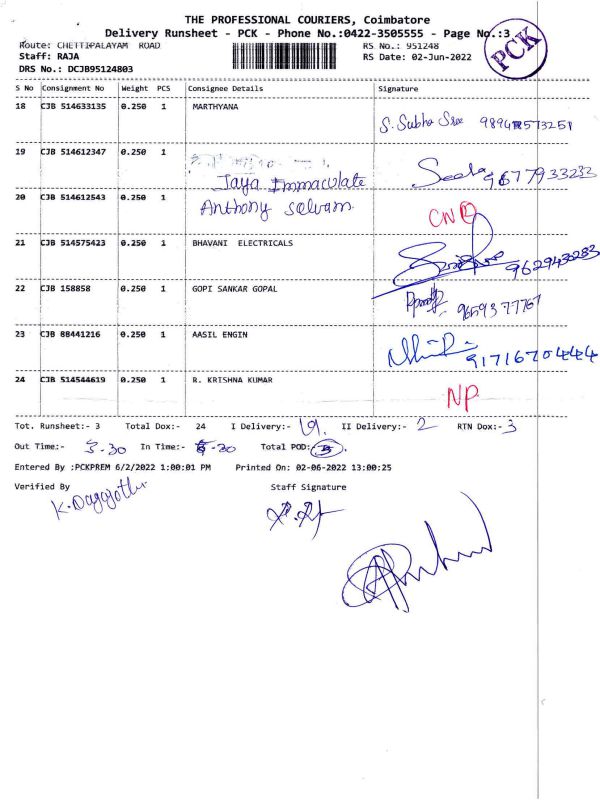 THE PROFESSIONAL COURIERS, Coimbatore
Delivery Runsheet - PCK - Phone No.:0422-3505555 - Page No.:3
PCK
Route: CHETTIPALAYAM ROAD RS No.: 951248
Staff: RAJA RS Date: 02-Jun-2022
DRS No.: DCJB95124803
S No Consignment No Weight PCS Consignee Details Signature
18 CJB 514633135 0.250 1 MARTHYANA
S. Subha Sree
19 CJB 514612347 0.250 1
Jaya Immaculate
Seela 9677933233
20 CJB 514612543 0.250 1 Anthony Selvam
CNP
21 CJB 514575423 0.250 1 BHAVANI ELECTRICALS
9629430283
22 CJB 158858 0.250 1 GOPI SANKAR GOPAL
9659377767
23 CJB 88441216 0.250 1 AASIL ENGIN
9171670444
24 CJB 514544619 0.250 1 R. KRISHNA KUMAR
NP
Tot. Runsheet:- 3 Total Dox:- 24 I Delivery:- 19. II Delivery:- 2 RTN Dox:- 3
Out Time:- 3.30 In Time:- 5.30 Total POD:-
Entered By :PCKPREM 6/2/2022 1:00:01 PM Printed On: 02-06-2022 13:00:25
Verified By Staff Signature